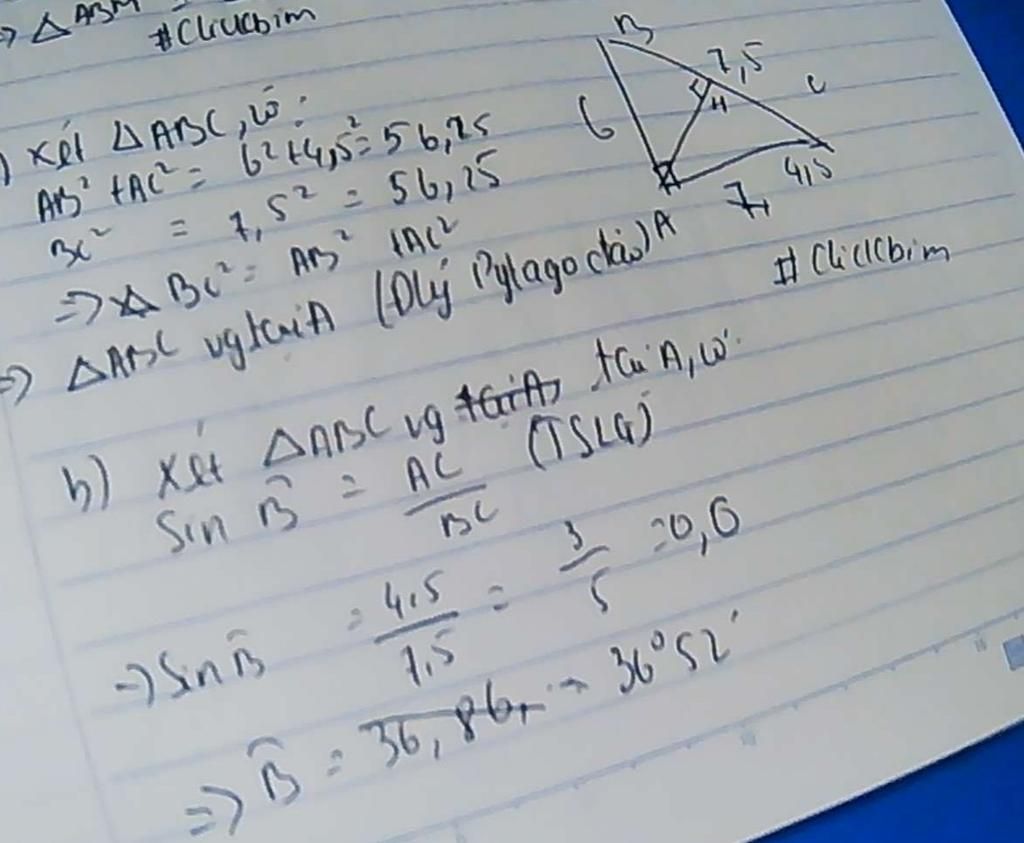 => △ ABM
#Cliclcbim
) Xét △ABC, có:
AB² + AC² = 6² + 4,5² = 56,25
BC² = 7,5² = 56,25
=> BC² = AB² + AC²
=> △ABC vg tại A (Đlý Pytago đảo)
B
7,5
6
H
C
4,5
A
#Cliclcbim
b) Xét △ABC vg tại A, có:
Sin B̂ = AC/BC (TSLG)
=> Sin B̂ = 4,5/7,5 = 3/5 = 0,6
=> B̂ = 36,86 36°52'